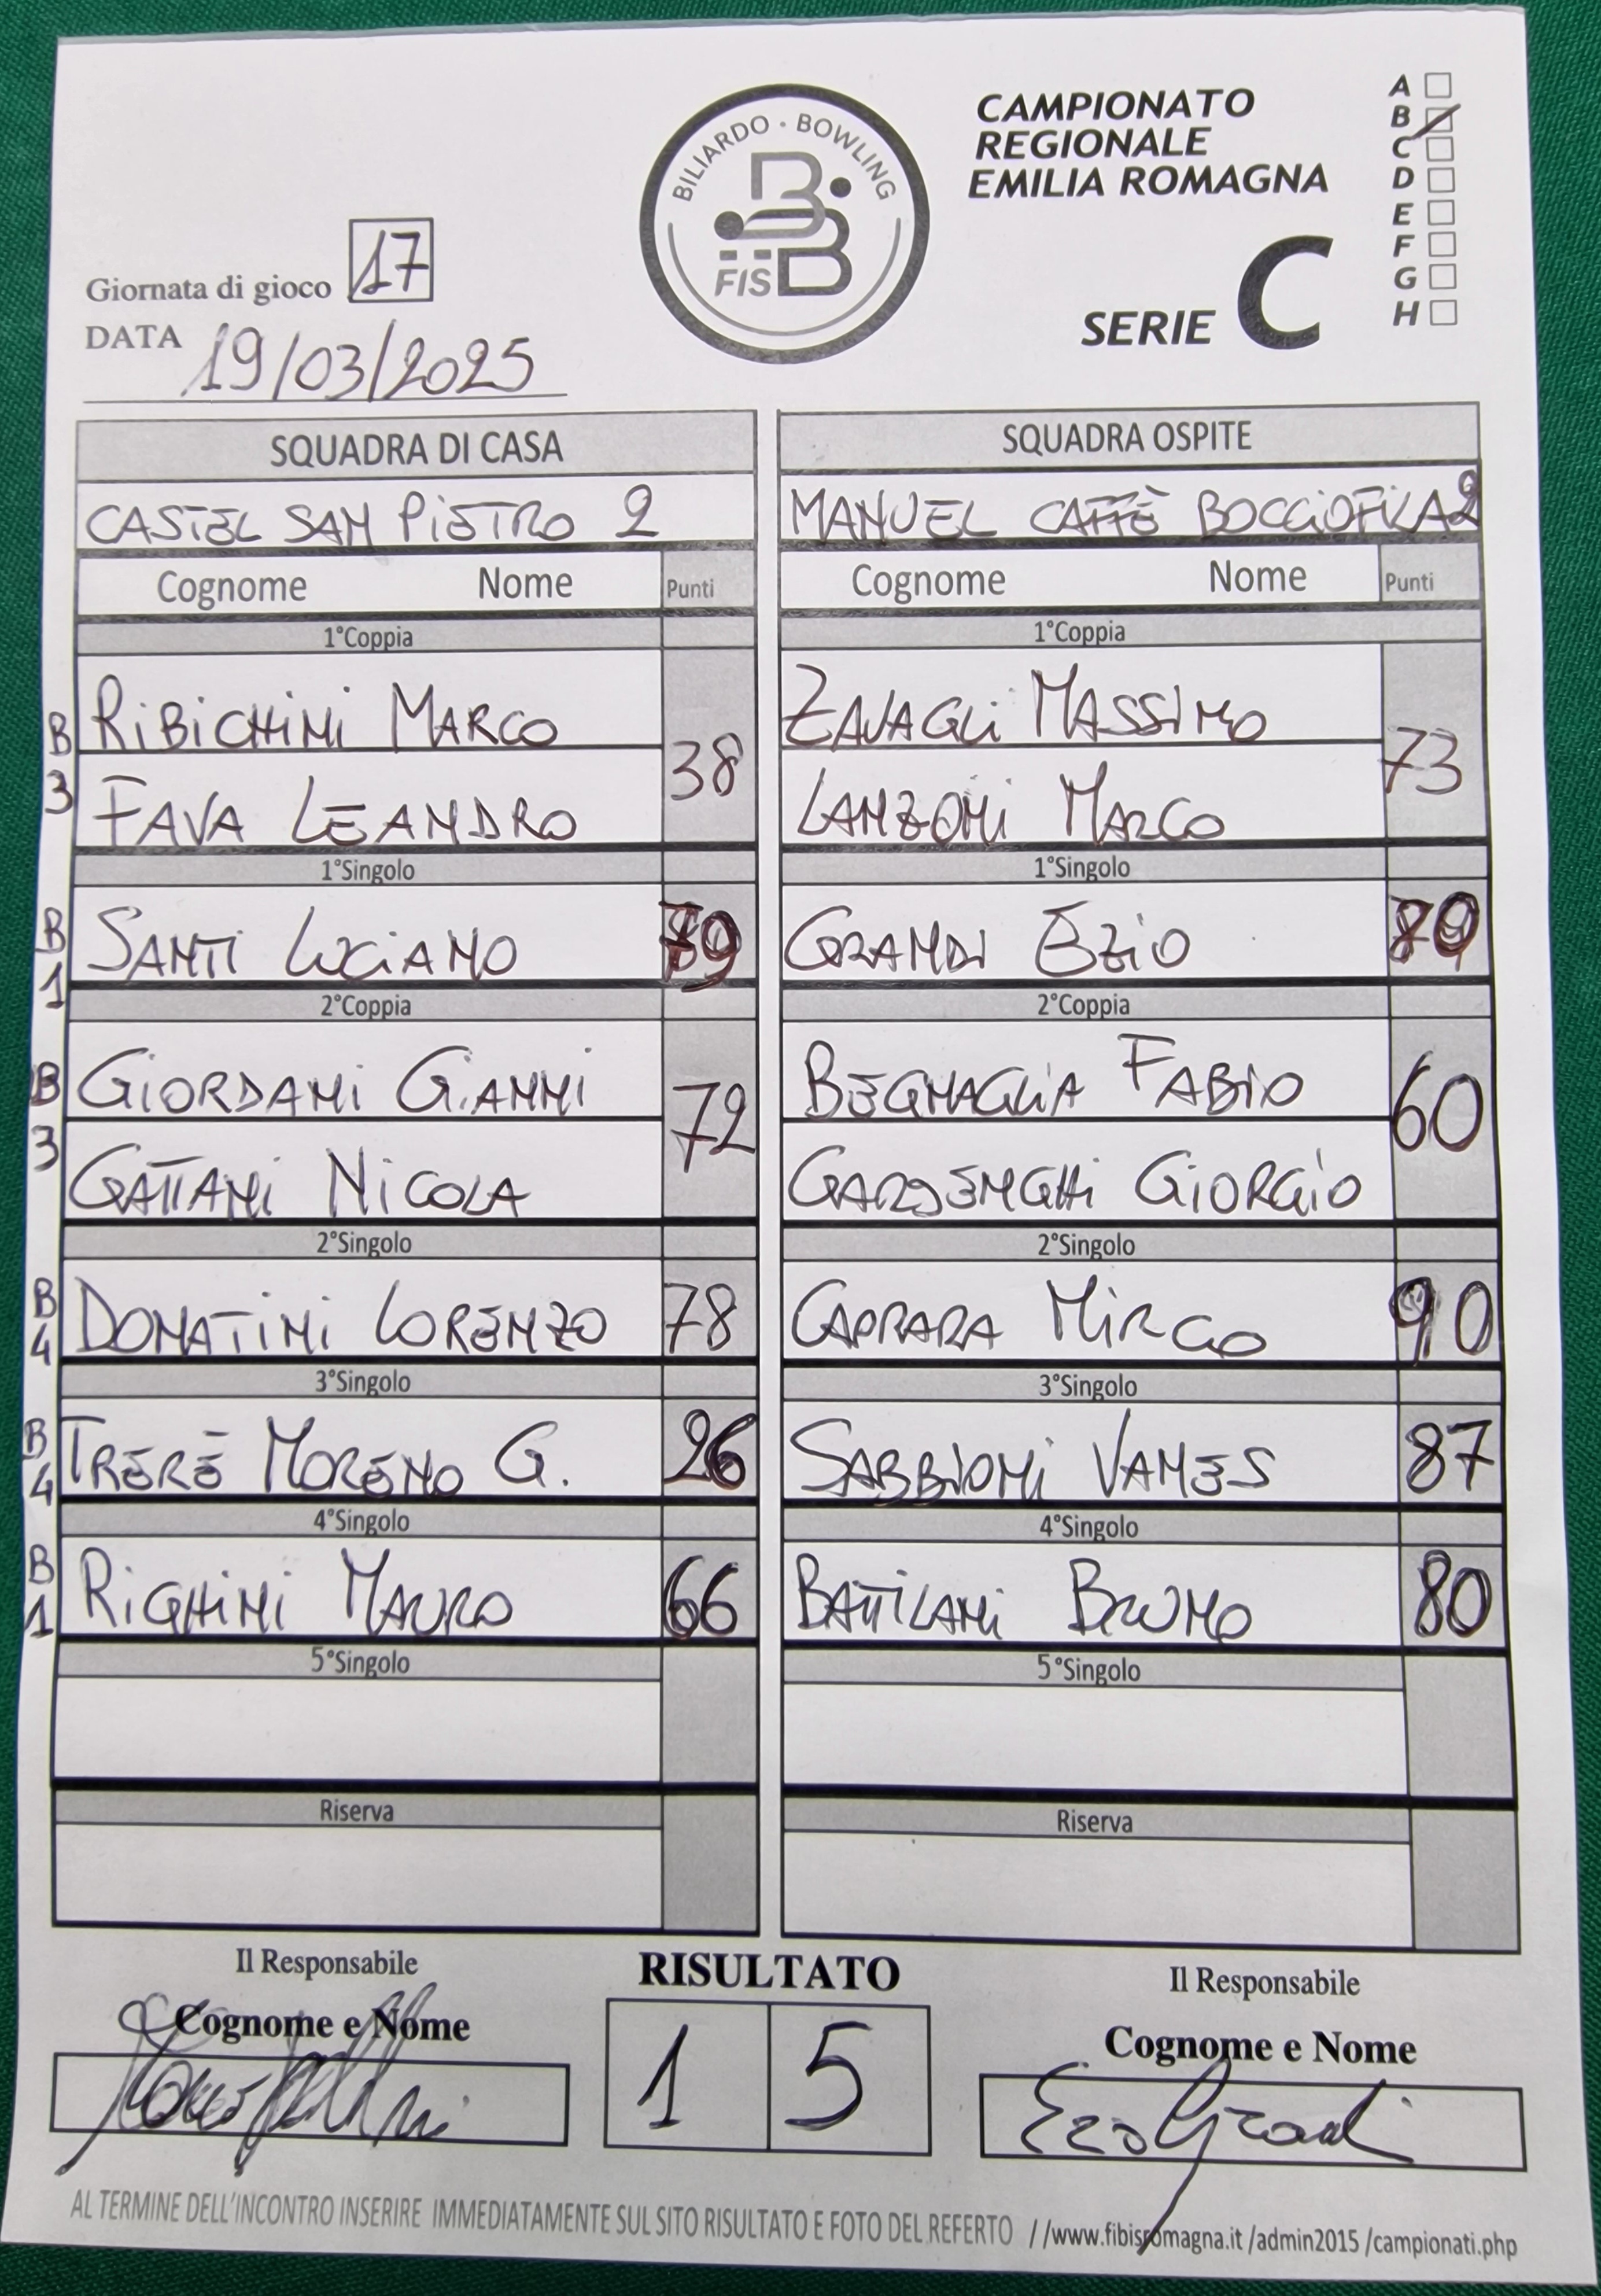 BILIARDO · BOWLING
FISBB
CAMPIONATO
REGIONALE
EMILIA ROMAGNA
SERIE C
A
B
C
D
E
F
G
H
Giornata di gioco 17
DATA 19/03/2025
SQUADRA DI CASA
CASTEL SAN PIETRO 2
Cognome Nome Punti
1°Coppia
B RIBICHINI MARCO
3 FAVA LEANDRO
38
1°Singolo
B 1 SANTI LUCIANO
2°Coppia
B GIORDANI GIANNI
3 GATTANI NICOLA
72
2°Singolo
B 4 DONATINI LORENZO 78
3°Singolo
B 4 TRERÈ MORENO G. 26
4°Singolo
B 1 RIGHINI MAURO 66
5°Singolo
Riserva
SQUADRA OSPITE
MANUEL CAFFÈ BOCCIOFILA 2
Cognome Nome Punti
1°Coppia
ZAVAGLI MASSIMO
LANZONI MARCO
73
1°Singolo
GRANDI EZIO
2°Coppia
BEGNAGLIA FABIO
GARDENGHI GIORGIO
60
2°Singolo
CAPRARA MIRCO 90
3°Singolo
SABBIONI VANES 87
4°Singolo
BATTILANI BRUNO 80
5°Singolo
Riserva
Il Responsabile
Cognome e Nome
RISULTATO
1 5
Il Responsabile
Cognome e Nome
Ezio Grandi
AL TERMINE DELL'INCONTRO INSERIRE IMMEDIATAMENTE SUL SITO RISULTATO E FOTO DEL REFERTO //www.fibisromagna.it /admin2015 /campionati.php